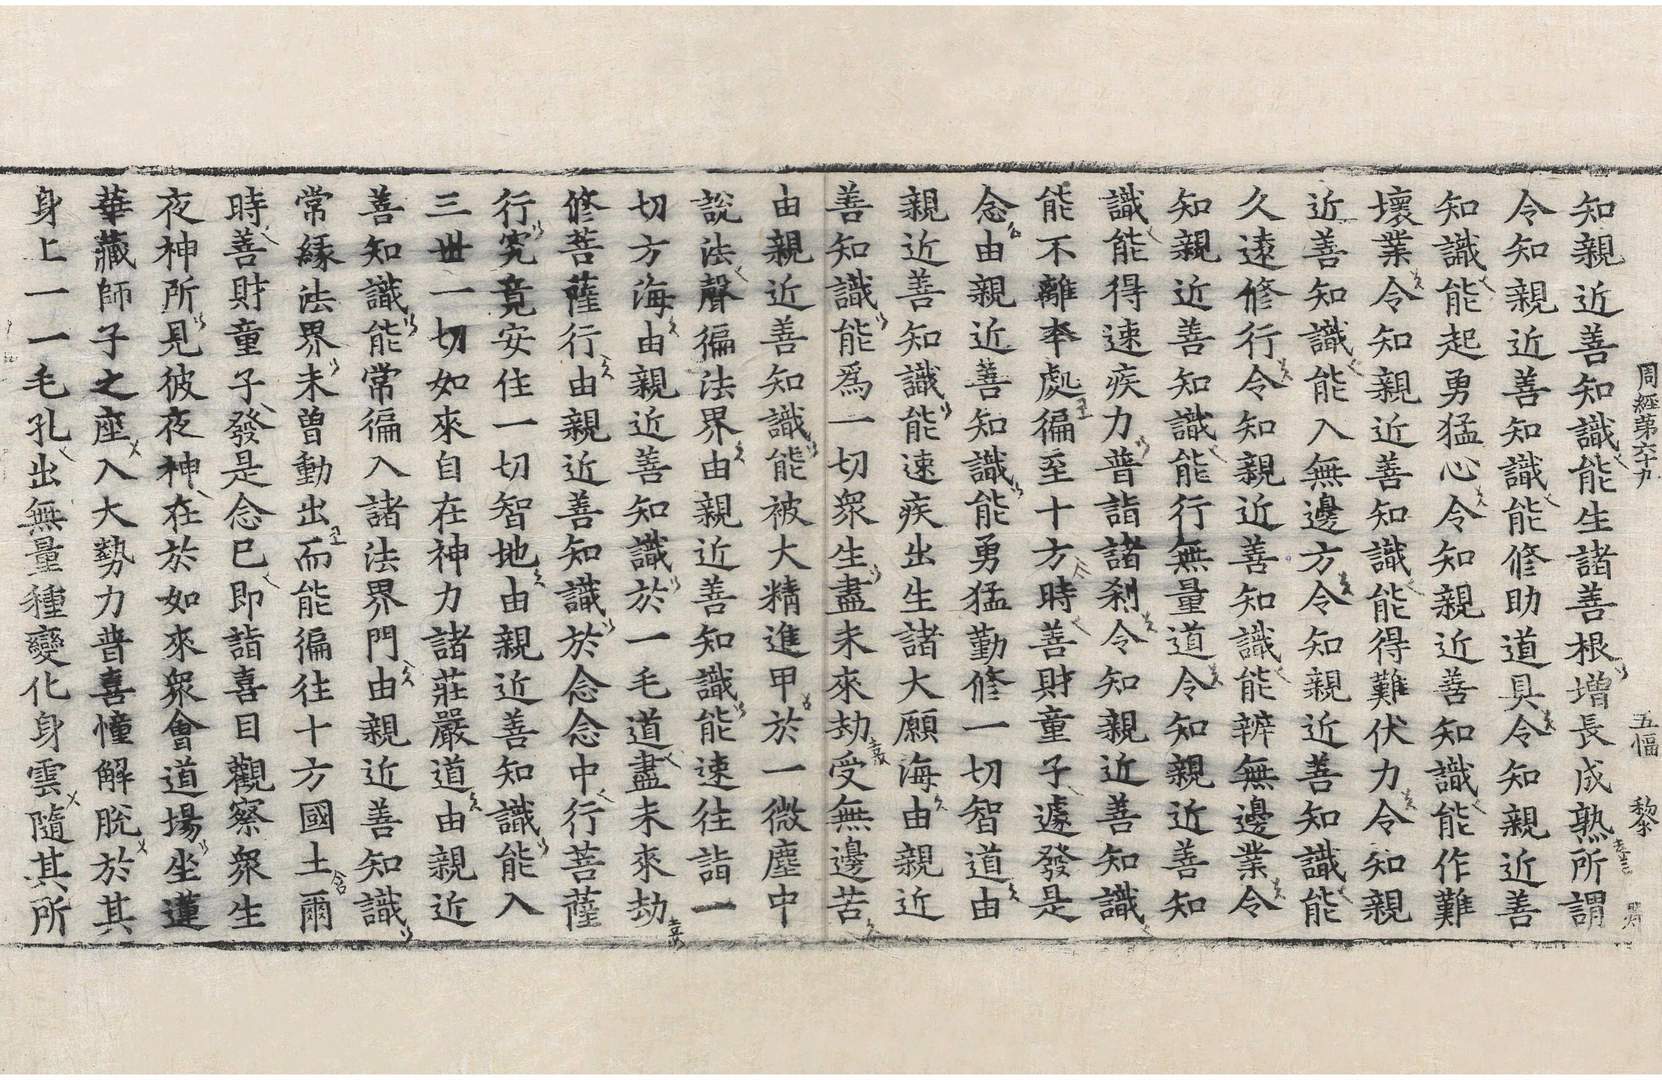 周經第六十九 五幅 黎
知親近善知識能生諸善根增長成熟所謂
令知親近善知識能修助道具令知親近善
知識能起勇猛心令知親近善知識能作難
壞業令知親近善知識能得難伏力令知親
近善知識能入無邊方令知親近善知識能
久遠修行令知親近善知識能辨無邊業令
知親近善知識能行無量道令知親近善知
識能得速疾力普詣諸刹令知親近善知識
能不離本處徧至十方時善財童子遽發是
念由親近善知識能勇猛勤修一切智道由
親近善知識能速疾出生諸大願海由親近
善知識能爲一切衆生盡未來劫受無邊苦
由親近善知識能被大精進甲於一微塵中
說法聲徧法界由親近善知識能速往詣一
切方海由親近善知識於一毛道盡未來劫
修菩薩行由親近善知識於念念中行菩薩
行究竟安住一切智地由親近善知識能入
三世一切如來自在神力諸莊嚴道由親近
善知識能常徧入諸法界門由親近善知識
常緣法界未曾動出而能徧往十方國土爾
時善財童子發是念已即詣喜目觀察衆生
夜神所見彼夜神在於如來衆會道場坐蓮
華藏師子之座入大勢力普喜幢解脫於其
身上一一毛孔出無量種變化身雲隨其所